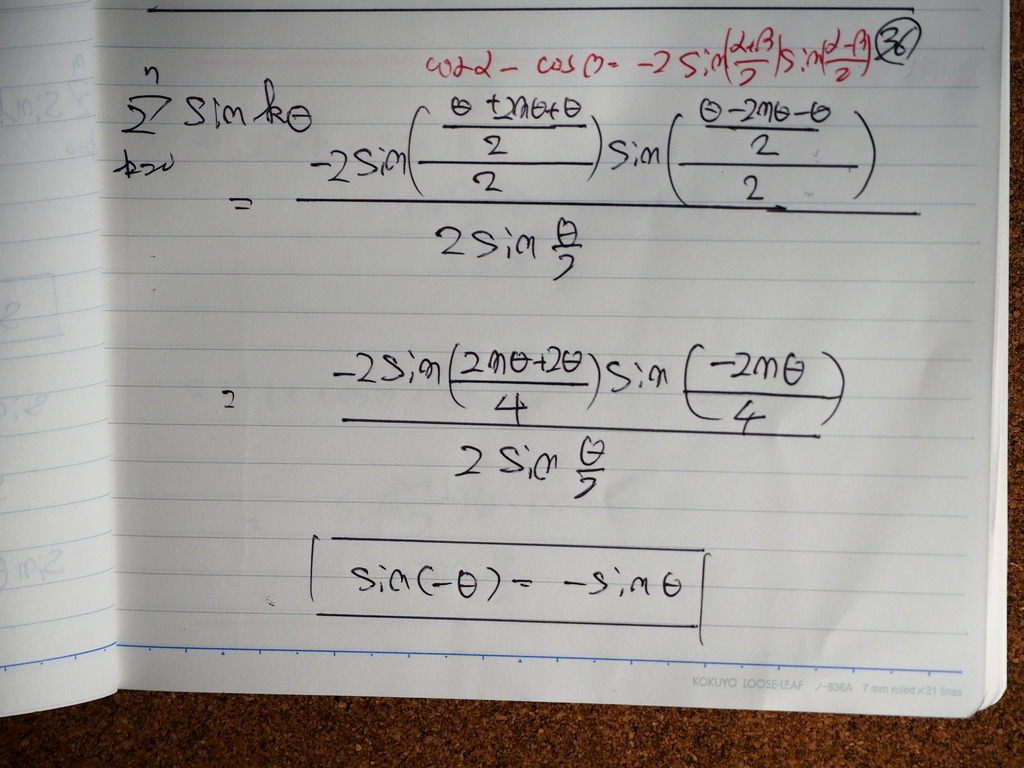 cosα - cosβ = -2 sin(α+β/2) sin(α-β/2) 36
n
Σ sin kθ
k=0
= -2 sin((θ+2nθ+θ/2)/2) sin((θ-2nθ-θ/2)/2) / 2 sin θ/2
= -2 sin(2nθ+2θ/4) sin(-2nθ/4) / 2 sin θ/2
sin(-θ) = -sinθ
KOKUYO LOOSE-LEAF ノ-836A 7 mm ruled×31 lines